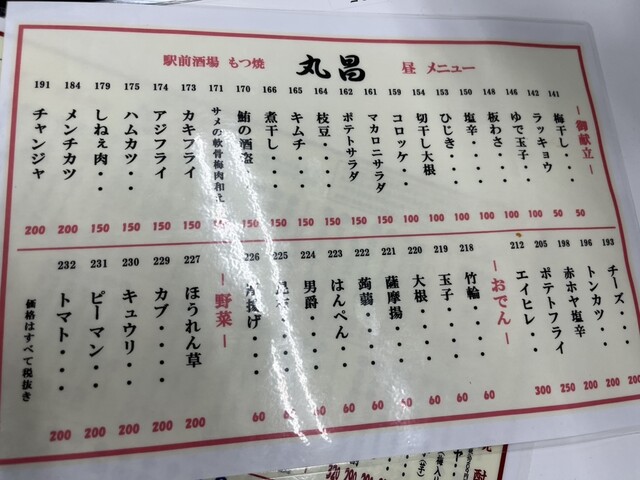 駅前酒場 もつ焼 丸昌 昼 メニュー
ー御献立ー
141 梅干し・・・ 50
142 ラッキョウ 50
146 ゆで玉子・・ 100
148 板わさ・・・ 100
150 塩辛・・・ 100
153 ひじき・・・ 100
154 切干し大根 100
159 コロッケ・・ 150
161 マカロニサラダ 150
162 ポテトサラダ 150
164 枝豆・・・ 150
165 キムチ・・・ 150
166 煮干し・・・ 150
170 鮪の酒盗・・ 150
171 サメの軟骨梅肉和え
173 カキフライ 150
174 アジフライ 150
175 ハムカツ・・ 150
179 しねぇ肉・・ 150
184 メンチカツ 200
191 チャンジャ 200
193 チーズ・・・ 200
196 トンカツ・・ 200
198 赤ホヤ塩辛 200
205 ポテトフライ 250
212 エイヒレ・・ 300
ーおでんー
218 竹輪・・・ 60
219 玉子・・・ 60
220 大根・・・ 60
221 薩摩揚・・ 60
222 蒟蒻・・・ 60
223 はんぺん・ 60
224 男爵・・・ 60
225 60
226 揚げ・・ 60
ー野菜ー
227 ほうれん草 200
229 カブ・・・ 200
230 キュウリ・・ 200
231 ピーマン・・ 200
232 トマト・・・ 200
価格はすべて税抜き